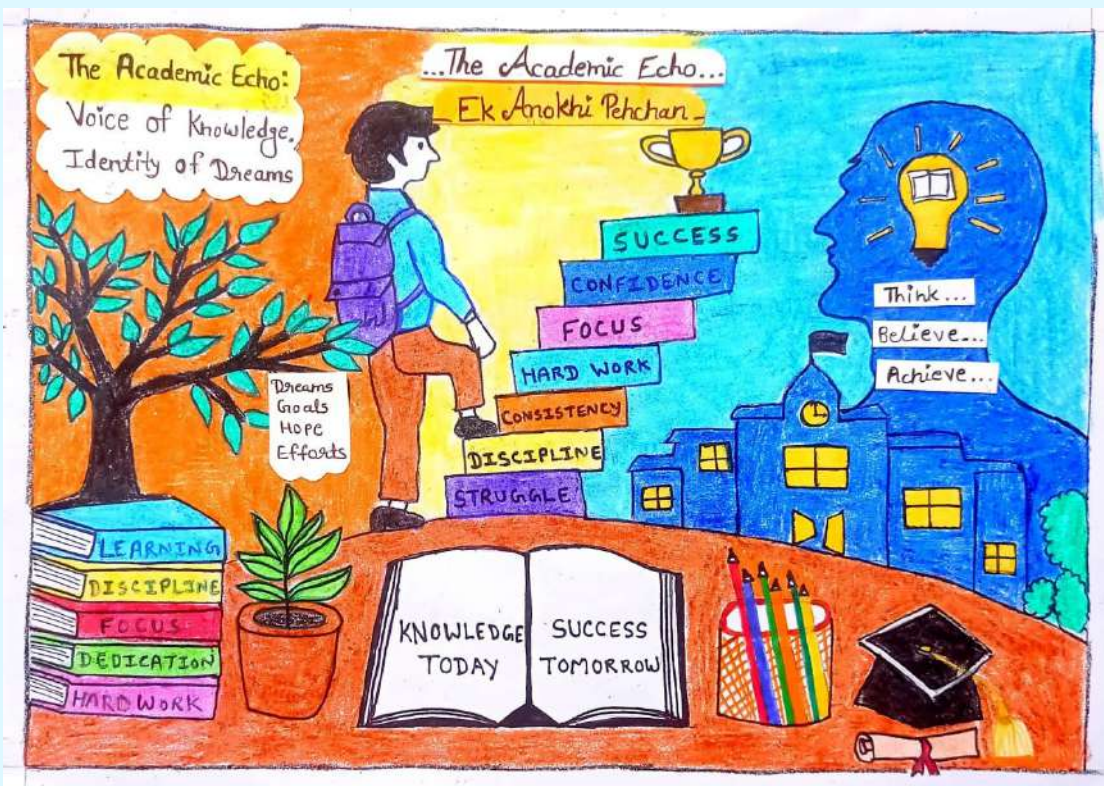 The Academic Echo:
Voice of Knowledge.
Identity of Dreams
...The Academic Echo...
Ek Anokhi Pehchan
SUCCESS
CONFIDENCE
FOCUS
HARD WORK
CONSISTENCY
DISCIPLINE
STRUGGLE
Think...
Believe...
Achieve...
Dreams
Goals
Hope
Efforts
LEARNING
DISCIPLINE
FOCUS
DEDICATION
HARD WORK
KNOWLEDGE
TODAY
SUCCESS
TOMORROW